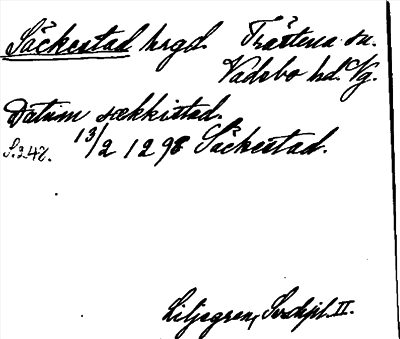 Säckestad hrgd. Trästena sn.
Vadsbo hd. Vg.
Datum sækkistad.
S. 247. 13/2 1298 Säckestad.
Liljegren, Sv. dipl. II.